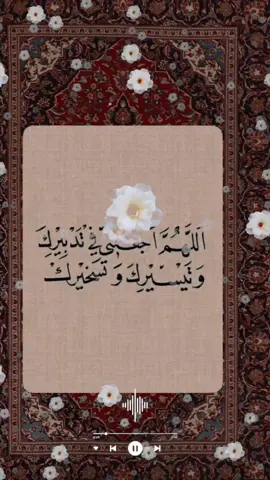 اَللَّهُمَّ فِيْ تَدْبِيْرِكَ
وَتَيْسِيْرِكَ وَ تَسْخِيْرِكْ